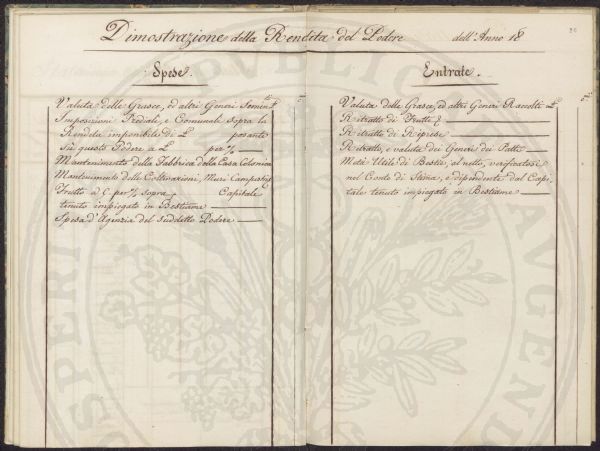 Dimostrazione della Rendita del Podere dell'Anno 18
Spese.
Valuta delle Grasce, ed altri Generi Semin
Imposizioni Prediali, e Comunali sopra la
Rendita imponibile di L posante
Su questo Podere a L per %
Mantenimento della Fabbrica della Casa Colonica
Mantenimento delle Coltivazioni, Muri Campestri
Frutto a 6 per % sopra Capitale
tenuto impiegato in Bestiame
Spesa d'Agenzia del suddetto Podere
Entrate.
Valuta delle Grasce, ed altri Generi Raccolti
Ritratto di Frutti
Ritratto di Riprese
Ritratto, e valuta dei Generi dei Patti
Metà Utile di Bestie, al netto, verificatosi
nel Conto di Stima, e dipendente dal Capi-
tale tenuto impiegato in Bestiame
PUBLIC
PROSPERI
AUGEND